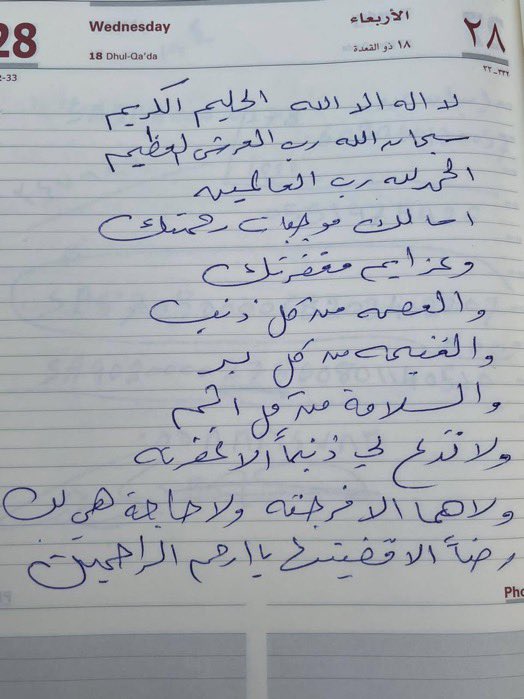 28 Wednesday الأربعاء ٢٨
18 Dhul-Qa'da ١٨ ذو القعدة
2-33 ٣٣٢-٣٣
لا اله الا الله الحليم الكريم
سبحان الله رب العرش العظيم
الحمد لله رب العالمين
اسالك موجبات رحمتك
وعزايم مغفرتك
والعصمه من كل ذنب
والغنيمه من كل بر
والسلامة من كل اثم
ولا تدع لي ذنباً الا غفرته
ولا هما الا فرجته ولا حاجة هي لك
رضاً الا قضيتها يا ارحم الراحمين
Pho